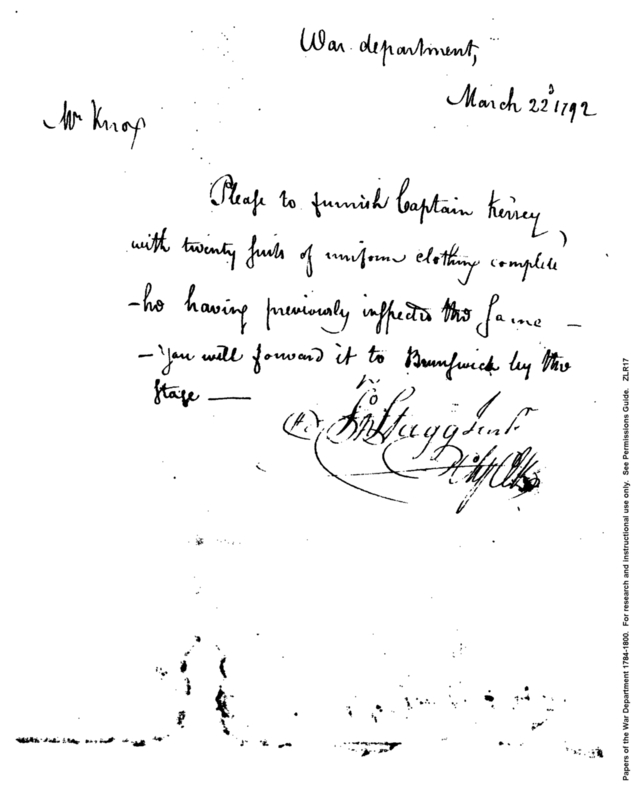 War department,
March 22d 1792
Mr Knox
Please to furnish Captain Kersey
with twenty suits of uniform clothing complete
- he having previously inspected the same -
- You will forward it to Brunswick by the
stage —
Stagg Junr
Papers of the War Department 1784-1800. For research and instructional use only. See Permissions Guide. ZLR17